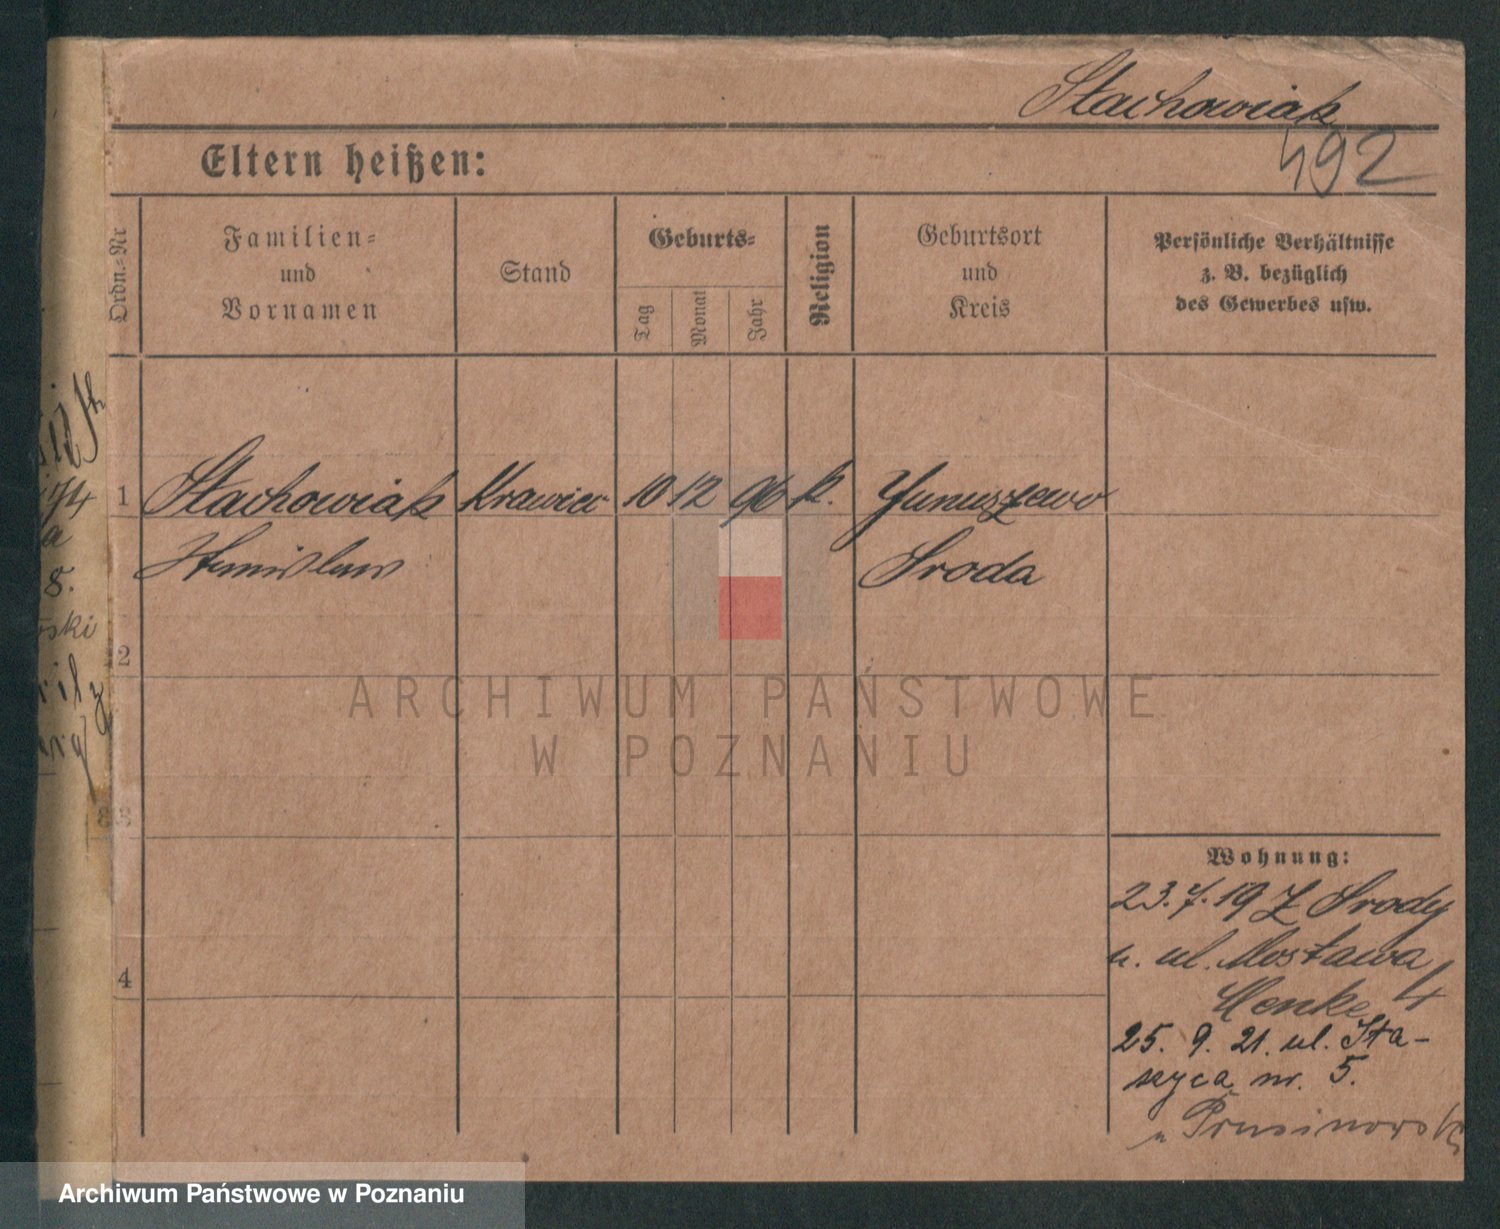 Stachowiak
492
Eltern heißen:
Ordn.-Nr
Familien-
und
Vornamen
Stand
Geburts-
Tag
Monat
Jahr
Religion
Geburtsort
und
Kreis
Persönliche Verhältnisse
z. B. bezüglich
des Gewerbes usw.
1 Stachowiak Krawiec 10 12 96 k. Januszewo
Stanislaw Sroda
2
3
4
ARCHIWUM PAŃSTWOWE
W POZNANIU
Wohnung:
23.7.19 Z Srody
ul. Mostawa 4
Henke
25. 9. 21. ul. Sta-
szyca nr. 5.
u Prusinowski
174
a
8.
ski
Archiwum Państwowe w Poznaniu